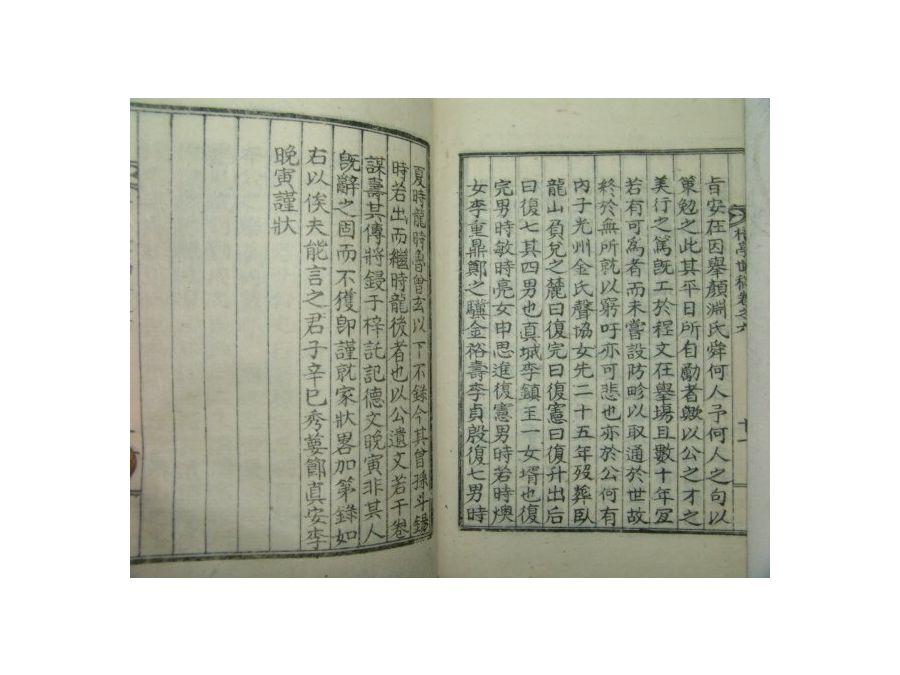 旨安在因擧顔淵氏舜何人予何人之句以
策勉之此其平日所自勵者歟以公之才之
美行之篤旣工於程文在擧場且數十年宜
若有可為者而未嘗設防畛以取通於世故
終於無所就以窮吁亦可悲也亦於公何有
內子光州金氏聲協女先二十五年歿葬臥
龍山負兌之麓曰復完曰復憲曰復升出后
曰復七其四男也真城李鎮王一女壻也復
完男時敏時亮女申思進復憲男時若時燠
女李重鼎鄭之驥金裕壽李貞殷復七男時
世稿卷之六
十一
夏時龍時魯曾玄以下不錄今其曾孫斗錫
時若出而繼時龍後者也以公遺文若干卷
謀壽其傳將鋟于梓託記德文晩寅非其人
旣辭之固而不獲卽謹就家狀畧加第錄如
右以俟夫能言之君子辛巳秀葽節真安李
晚寅謹狀